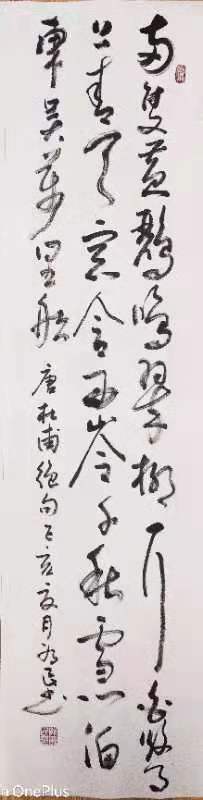 両隻黄鸝鳴翠柳一行白鷺
上青天窓含西岺千秋雪泊
東吴萬里船 唐杜甫絶句己亥夏月
OnePlus